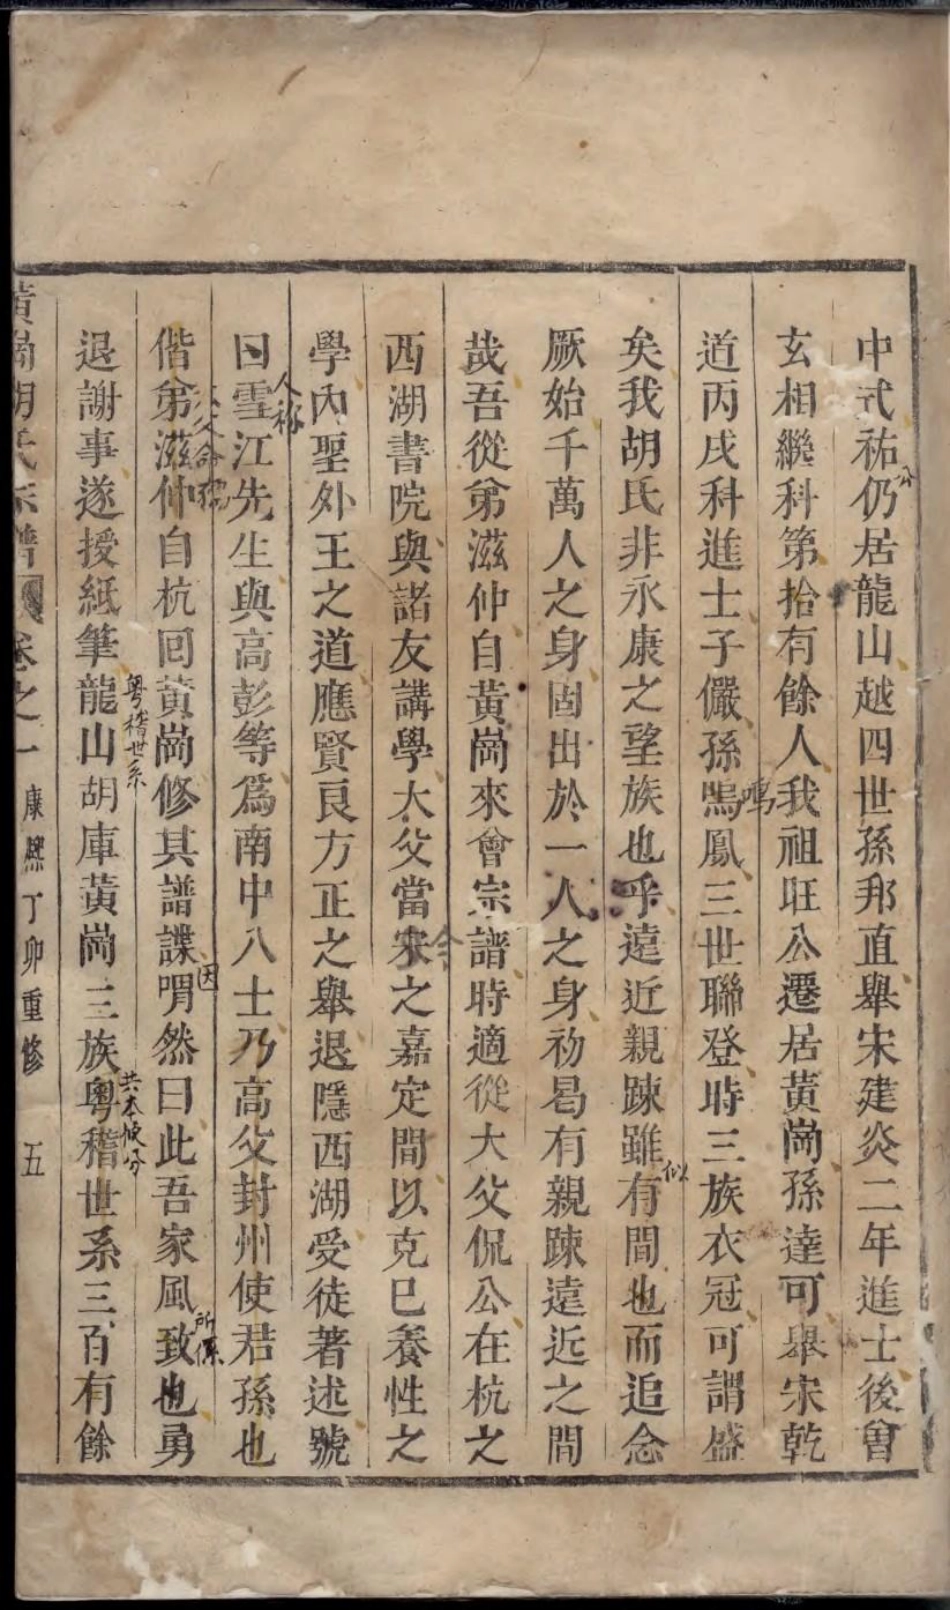 中式祐仍居龍山越四世孫邦直舉宋建炎二年進士後曾
公
玄相繼科第拾有餘人我祖旺公遷居黃崗孫達可舉宋乾
道丙戌科進士子儼孫鳴鳳三世聯登時三族衣冠可謂盛
鳴
矣我胡氏非永康之望族也乎遠近親踈雖有間也而追念
似
厥始千萬人之身固出於一人之身初曷有親踈遠近之間
哉吾從弟滋仲自黃崗來會宗譜時適從大父侃公在杭之
西湖書院與諸友講學大父當宋之嘉定間以克己養性之
學內聖外王之道應賢良方正之舉退隱西湖受徒著述號
曰雪江先生與高彭等為南中八士乃高父封州使君孫也
人称
偕弟滋仲自杭回黃崗修其譜諜喟然曰此吾家風致也勇
大父命
因
所係
退謝事遂授紙筆龍山胡庫黃崗三族粵稽世系三百有餘
粤稽世系
共本候分
黃崗胡氏宗譜 卷之一 康熙丁卯重修 五